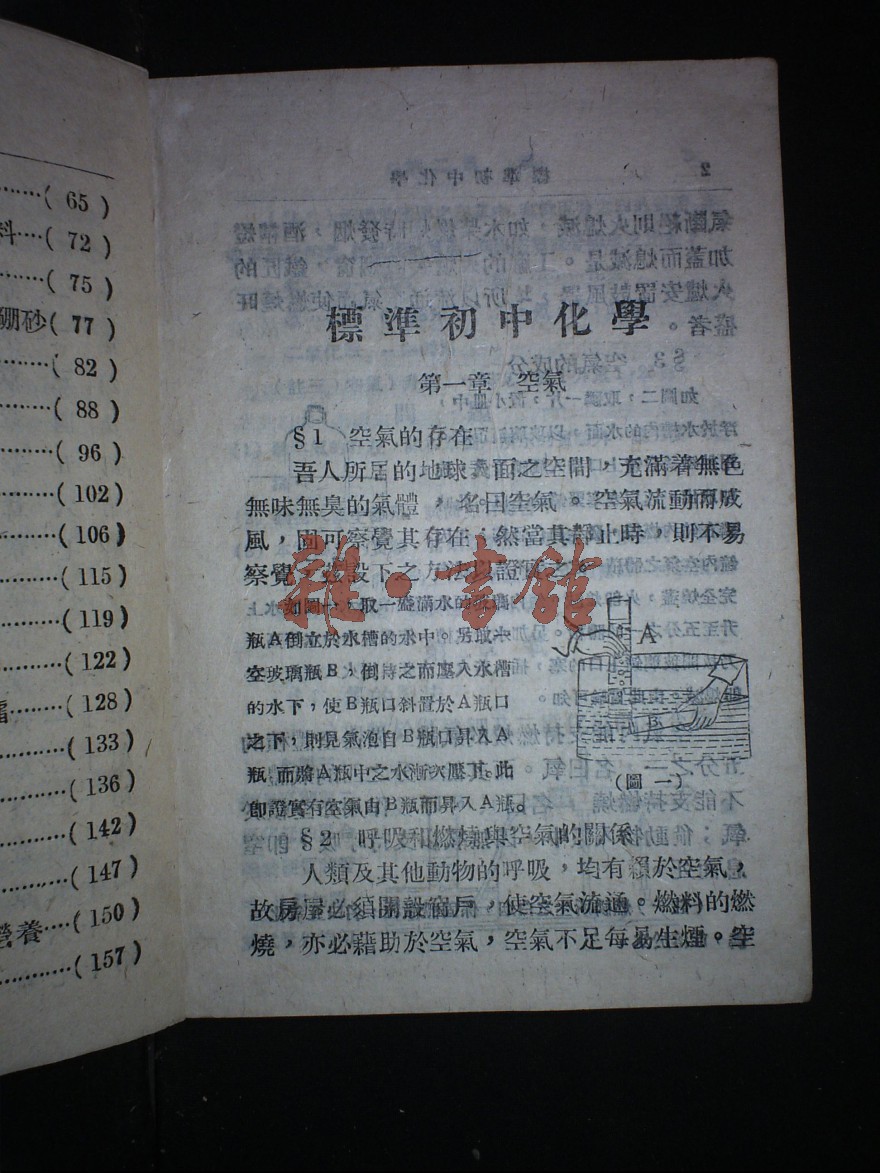 (65)
料(72)
(75)
硼砂(77)
(82)
(88)
(96)
(102)
(106)
(115)
(119)
(122)
(128)
(133)
(136)
(142)
(147)
營養(150)
(157)
標準初中化學
第一章 空氣
§1 空氣的存在
吾人所居的地球表面之空間，充滿着無色
無味無臭的氣體，名曰空氣。空氣流動而成
風，固可察覺其存在；然當其靜止時，則不易
察覺，設下之方法以證之。
如圖一，取一盛滿水的玻璃
瓶A倒立於水槽的水中。另取一
空玻璃瓶B，倒持之而壓入水槽
的水下，使B瓶口斜置於A瓶口
之下，則見氣泡自B瓶口昇入A
瓶，而將A瓶中之水漸次壓下。此
即證實有空氣由B瓶而昇入A瓶。
A
B
(圖一)
§2 呼吸和燃燒與空氣的關係
人類及其他動物的呼吸，均有賴於空氣，
故房屋必須開設窗戶，使空氣流通。燃料的燃
燒，亦必藉助於空氣，空氣不足每易生煙。空
雜·書館